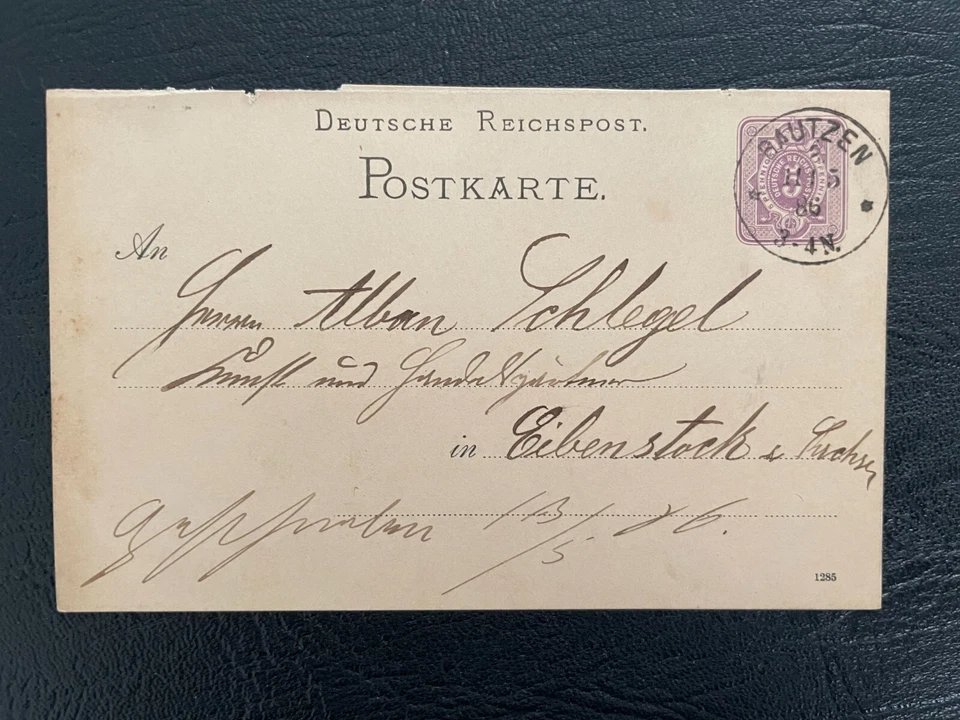 DEUTSCHE REICHSPOST.
POSTKARTE.
BAUTZEN
5
86
3-4N.
DEUTSCHE REICHSPOST
5
An
Herrn Alban Schlegel
Kunst und Handelsgärtner
in Eibenstock i Sachsen
geschrieben 13/5. 86.
1285